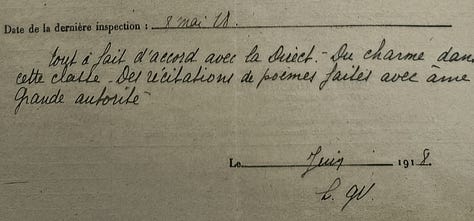 Date de la dernière inspection : 8 mai 18.
tout à fait d'accord avec la Direct. - Du charme dans
cette classe - Des récitations de poèmes faites avec âme
Grande autorité -
Le Juin 1918.